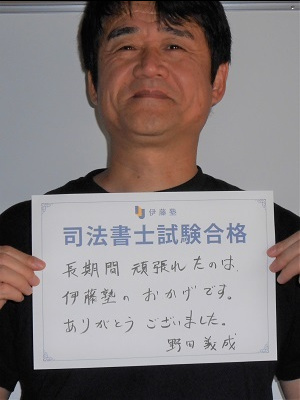 伊藤塾
司法書士試験合格
長期間 頑張れたのは
伊藤塾のおかげです。
ありがとうございました。
野田義成